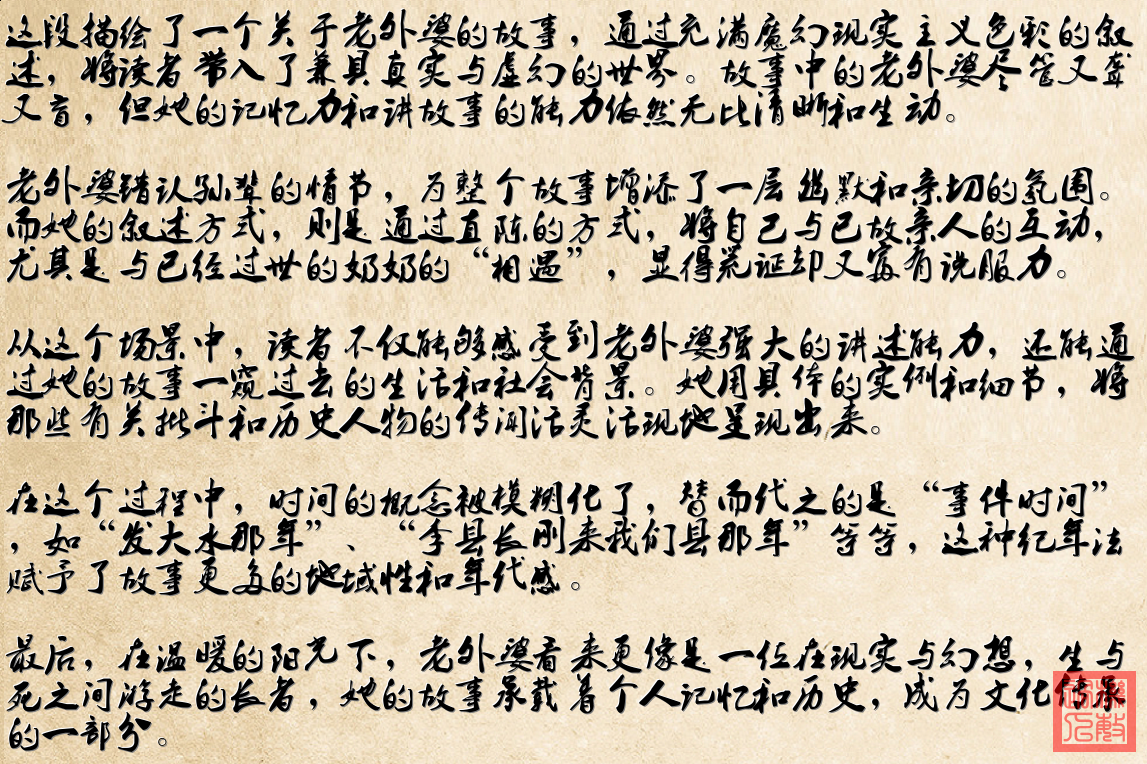 这段描绘了一个关于老外婆的故事，通过充满魔幻现实主义色彩的叙
述，将读者带入了兼具真实与虚幻的世界。故事中的老外婆尽管又聋
又盲，但她的记忆力和讲故事的能力依然无比清晰和生动。
老外婆错认孙辈的情节，为整个故事增添了一层幽默和亲切的氛围。
而她的叙述方式，则是通过直陈的方式，将自己与已故亲人的互动，
尤其是与已经过世的奶奶的“相遇”，显得荒诞却又富有说服力。
从这个场景中，读者不仅能够感受到老外婆强大的讲述能力，还能通
过她的故事一窥过去的生活和社会背景。她用具体的实例和细节，将
那些有关批斗和历史人物的传闻活灵活现地呈现出来。
在这个过程中，时间的概念被模糊化了，替而代之的是“事件时间”
，如“发大水那年”、“李县长刚来我们县那年”等等，这种纪年法
赋予了故事更多的地域性和年代感。
最后，在温暖的阳光下，老外婆看来更像是一位在现实与幻想，生与
死之间游走的长者，她的故事承载着个人记忆和历史，成为文化传承
的一部分。